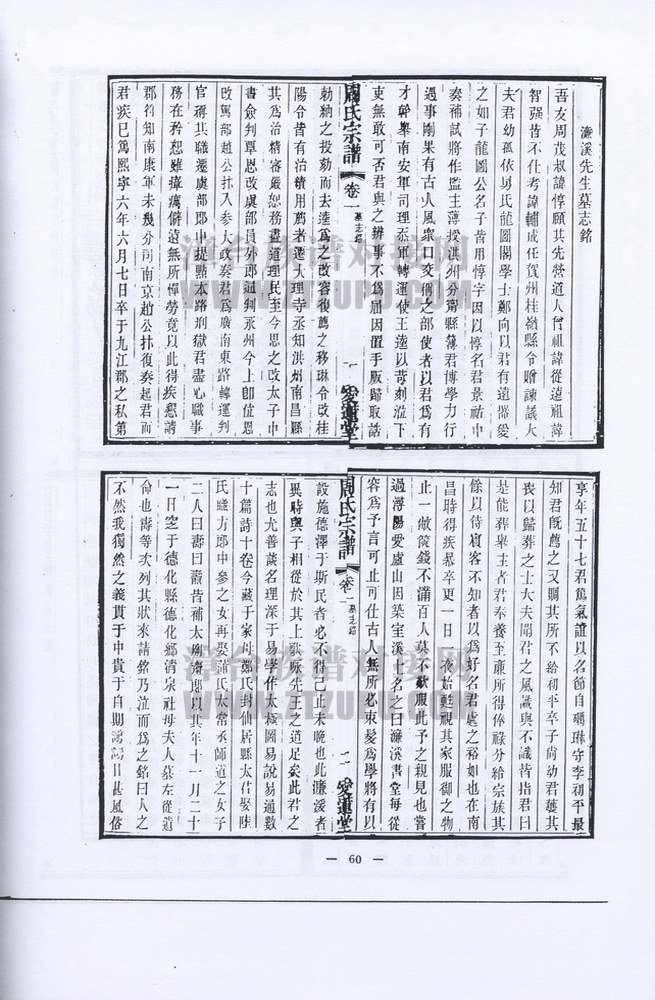 濂溪先生墓志銘
吾友周茂叔諱惇頤其先營道人曾祖諱從遠祖諱
智强皆不仕考諱輔成任賀州桂嶺縣令贈諫議大
夫君幼孤依舅氏龍圖閣學士鄭向以君有遠器愛
之如子龍圖公名子皆用惇字因以惇名君景祐中
奏補試將作監主薄授洪州分甯縣薄君博學力行
遇事剛果有古人風衆口交稱之部使者以君爲有
才幹舉南安軍司理叅軍轉運使王逵以苛刻涖下
吏無敢可否君與之辨事不爲屈因置手版歸取誥
勅納之投劾而去逵爲之改容復薦之移郴令改桂
陽令皆有治績用薦者遷大理寺丞知洪州南昌縣
其爲治精審嚴恕務盡道理民至今思之改太子中
書僉判覃恩改虞部員外郎通判永州今上卽位恩
改駕部趙公抃入參大政奏君爲廣南東路轉運判
官稱其職遷虞部郎中提點本路刑獄君盡心職事
務在矜恕雖瘴癘僻遠無所憚勞竟以此得疾懇請
郡符知南康軍未幾分司南京趙公抃復奏起君而
君疾已篤熙寧六年六月七日卒于九江郡之私第
周氏宗譜
卷一
墓志銘
一
愛蓮堂
享年五十七君篤氣誼以名節自礪琳守李初平最
知君旣薦之又賙其所不給利平卒子尙幼君護其
喪以歸葬之士大夫聞君之風識與不識皆指君曰
是能葬舉主者君奉養至廉所得俸祿分給宗族其
餘以待賓客不知者以爲好名君處之裕如也在南
昌時得疾暴卒更一日夜始甦視其家服御之物
止一敝篋錢不滿百人莫不歎服此予之親見也嘗
過潯陽愛廬山因築室溪上名之曰濂溪書堂每從
容爲予言可止可仕古人無所必束髮爲學將有以
設施德澤于斯民者必不得已止未晚也此濂溪者
異時與子相從於其上歌咏先王之道足矣此君之
志也尤善談名理深于易學作太極圖易說易通數
十篇詩十卷今藏于家母鄭氏封仙居縣太君娶陸
氏職方郎中參之女再娶蒲氏太常丞師道之女子
二人曰壽曰燾皆補太廟齋郎以其年十一月二十
一日窆于德化縣德化鄉淸泉社母夫人墓左從遺
命也壽等次列其狀來請銘乃泣而爲之銘曰人之
不然我獨然之義貫于中貴于自期
周氏宗譜
卷一
墓志銘
二
愛蓮堂
— 60 —